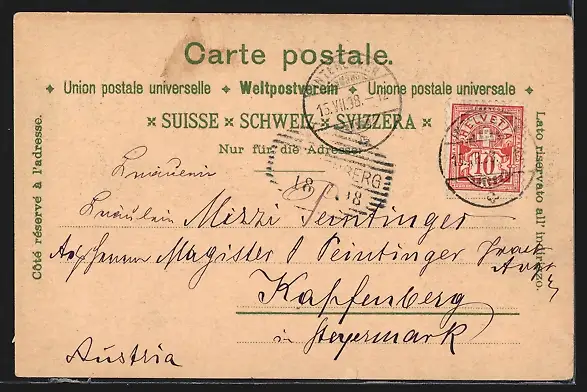 Carte postale.
✦ Union postale universelle ✦ Weltpostverein ✦ Unione postale universale ✦
× SUISSE × SCHWEIZ × SVIZZERA ×
Nur für die Adresse.
Côté réservé à l'adresse.
Lato riservato all' indirizzo.
INTERLAKEN
15.VII.98.-12
HELVETIA
10
BERG
18 8
Fräulein
Fräulein Mizzi Peintinger
Magister P. Peintinger
Kapfenberg
in Steyermark
Austria